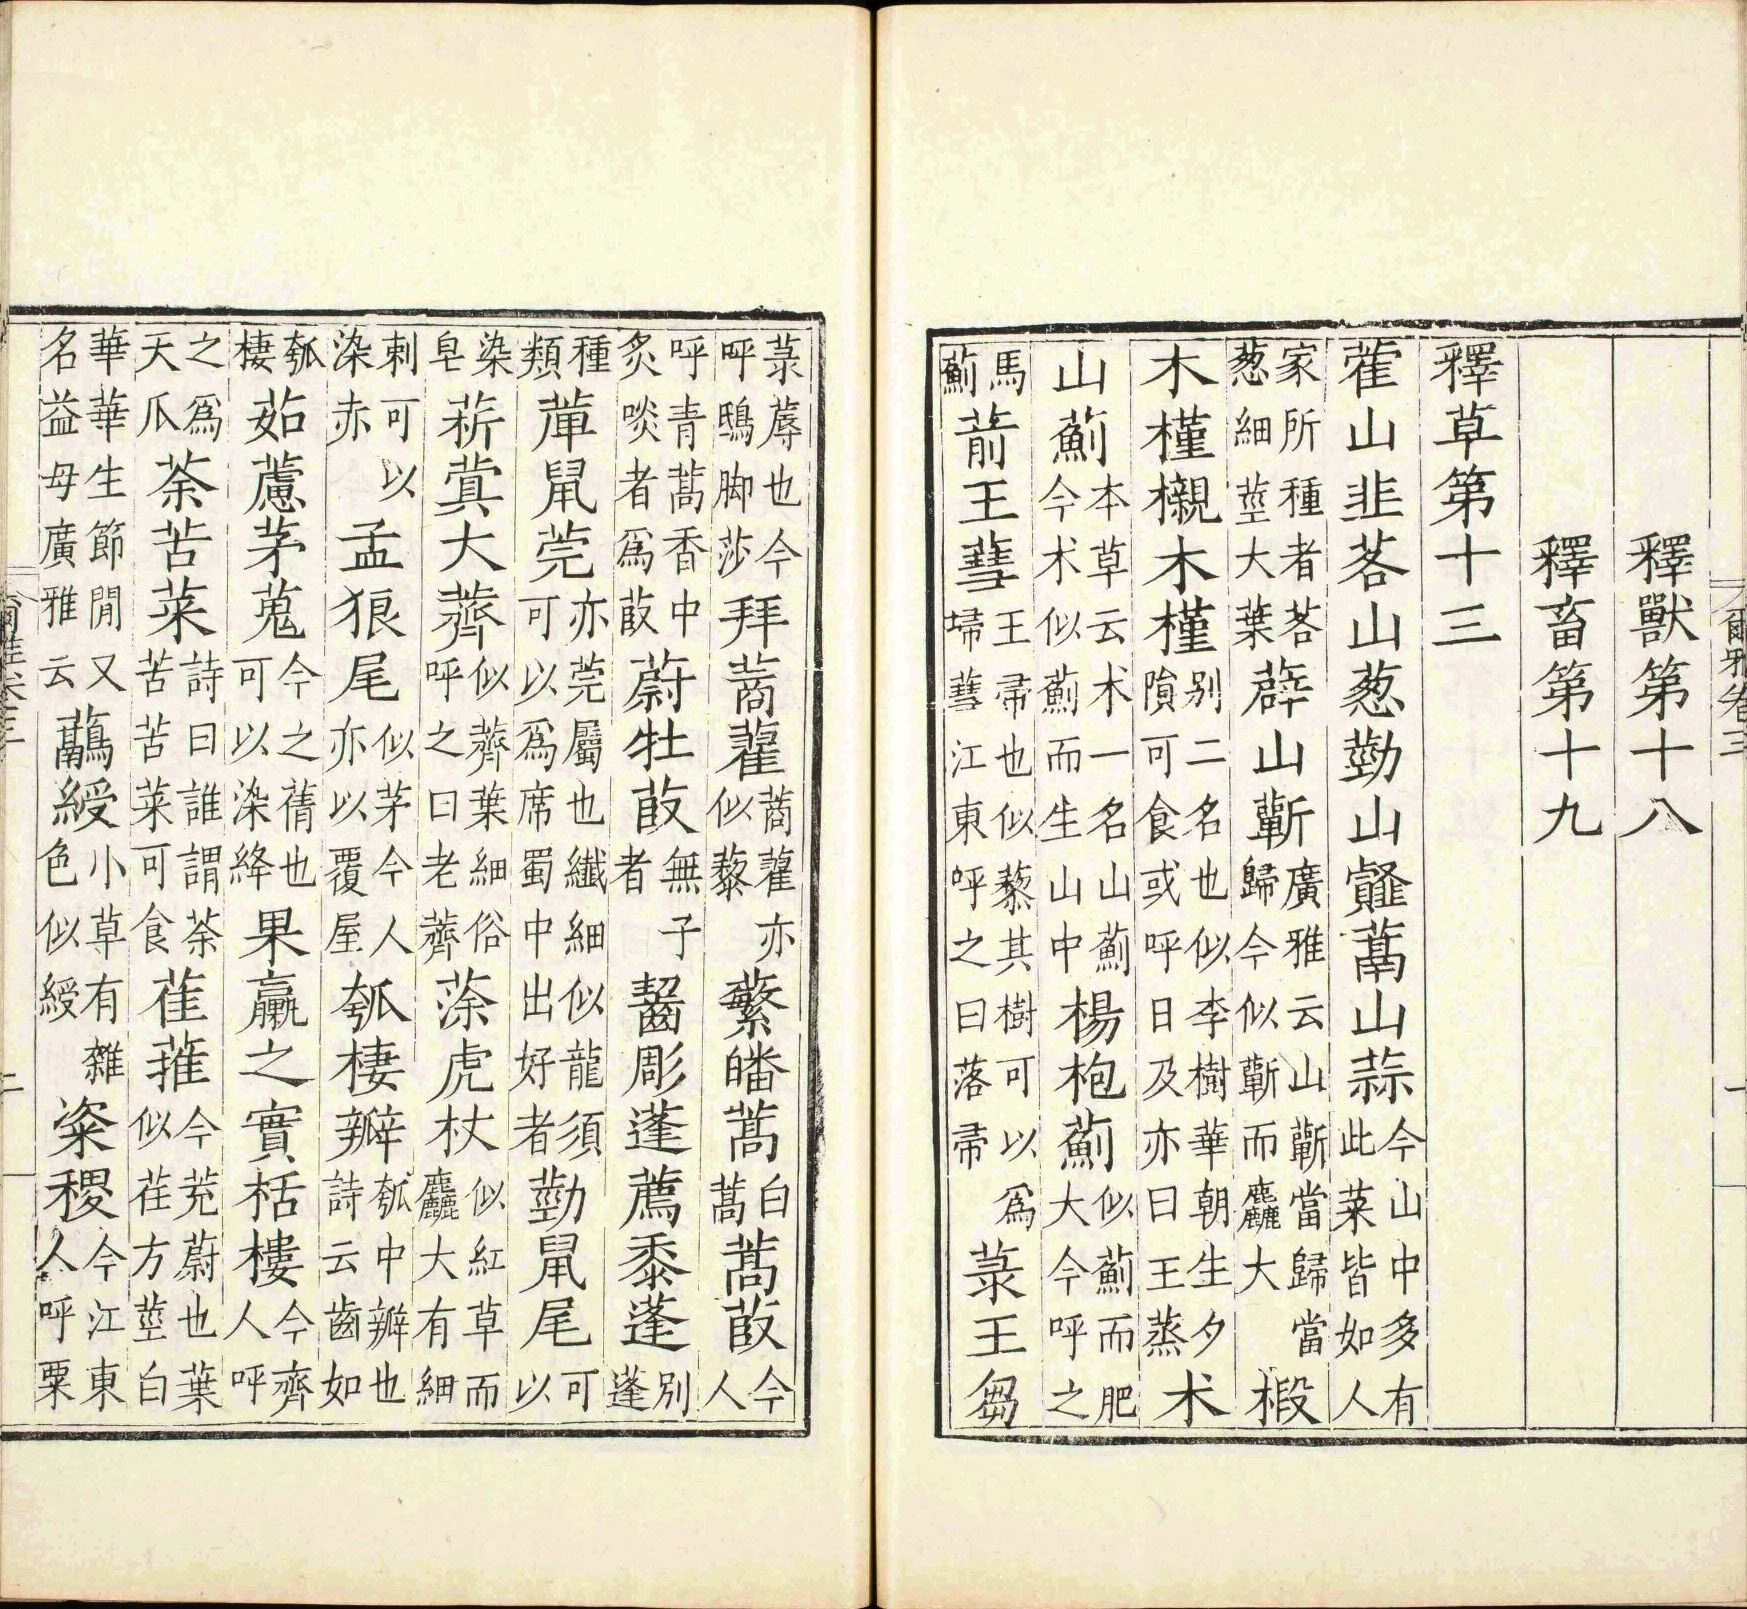 爾雅卷三 一
釋獸第十八
釋畜第十九
釋草第十三
藿山韭茖山葱葝山䪥蒚山蒜今山中多有此菜皆如人
家所種者茖葱細莖大葉薜山蘄廣雅云山蘄當歸當歸今似蘄而麤大椴
木槿櫬木槿别二名也似李樹華朝生夕隕可食或呼日及亦曰王蒸术
山薊本草云术一名山薊今术似薊而生山中楊枹薊似薊而肥大今呼之
馬薊葥王蔧王帚也似藜其樹可以爲埽蔧江東呼之曰落帚菉王芻
菉蓐也今呼鴟脚莎拜蔏藋蔏藋亦似藜蘩皤蒿白蒿蒿菣今人
呼青蒿香中炙啖者爲菣蔚牡菣無子者齧彫蓬薦黍蓬别蓬
種類萆鼠莞亦莞屬也纖細似龍須可以爲席蜀中出好者葝鼠尾可以
染皁菥蓂大薺似薺葉細俗呼之曰老薺蒤虎杖似紅草而麤大有細
刺可以染赤孟狼尾似茅今人亦以覆屋瓠棲瓣瓠中瓣也詩云齒如
瓠棲茹藘茅蒐今之蒨也可以染絳果臝之實栝樓今齊人呼
之爲天瓜荼苦菜詩曰誰謂荼苦苦菜可食萑蓷今茺蔚也葉似荏方莖白
華華生節閒又名益母廣雅云虉綬小草有雜色似綬粢稷今江東人呼粟
爾雅卷三 二